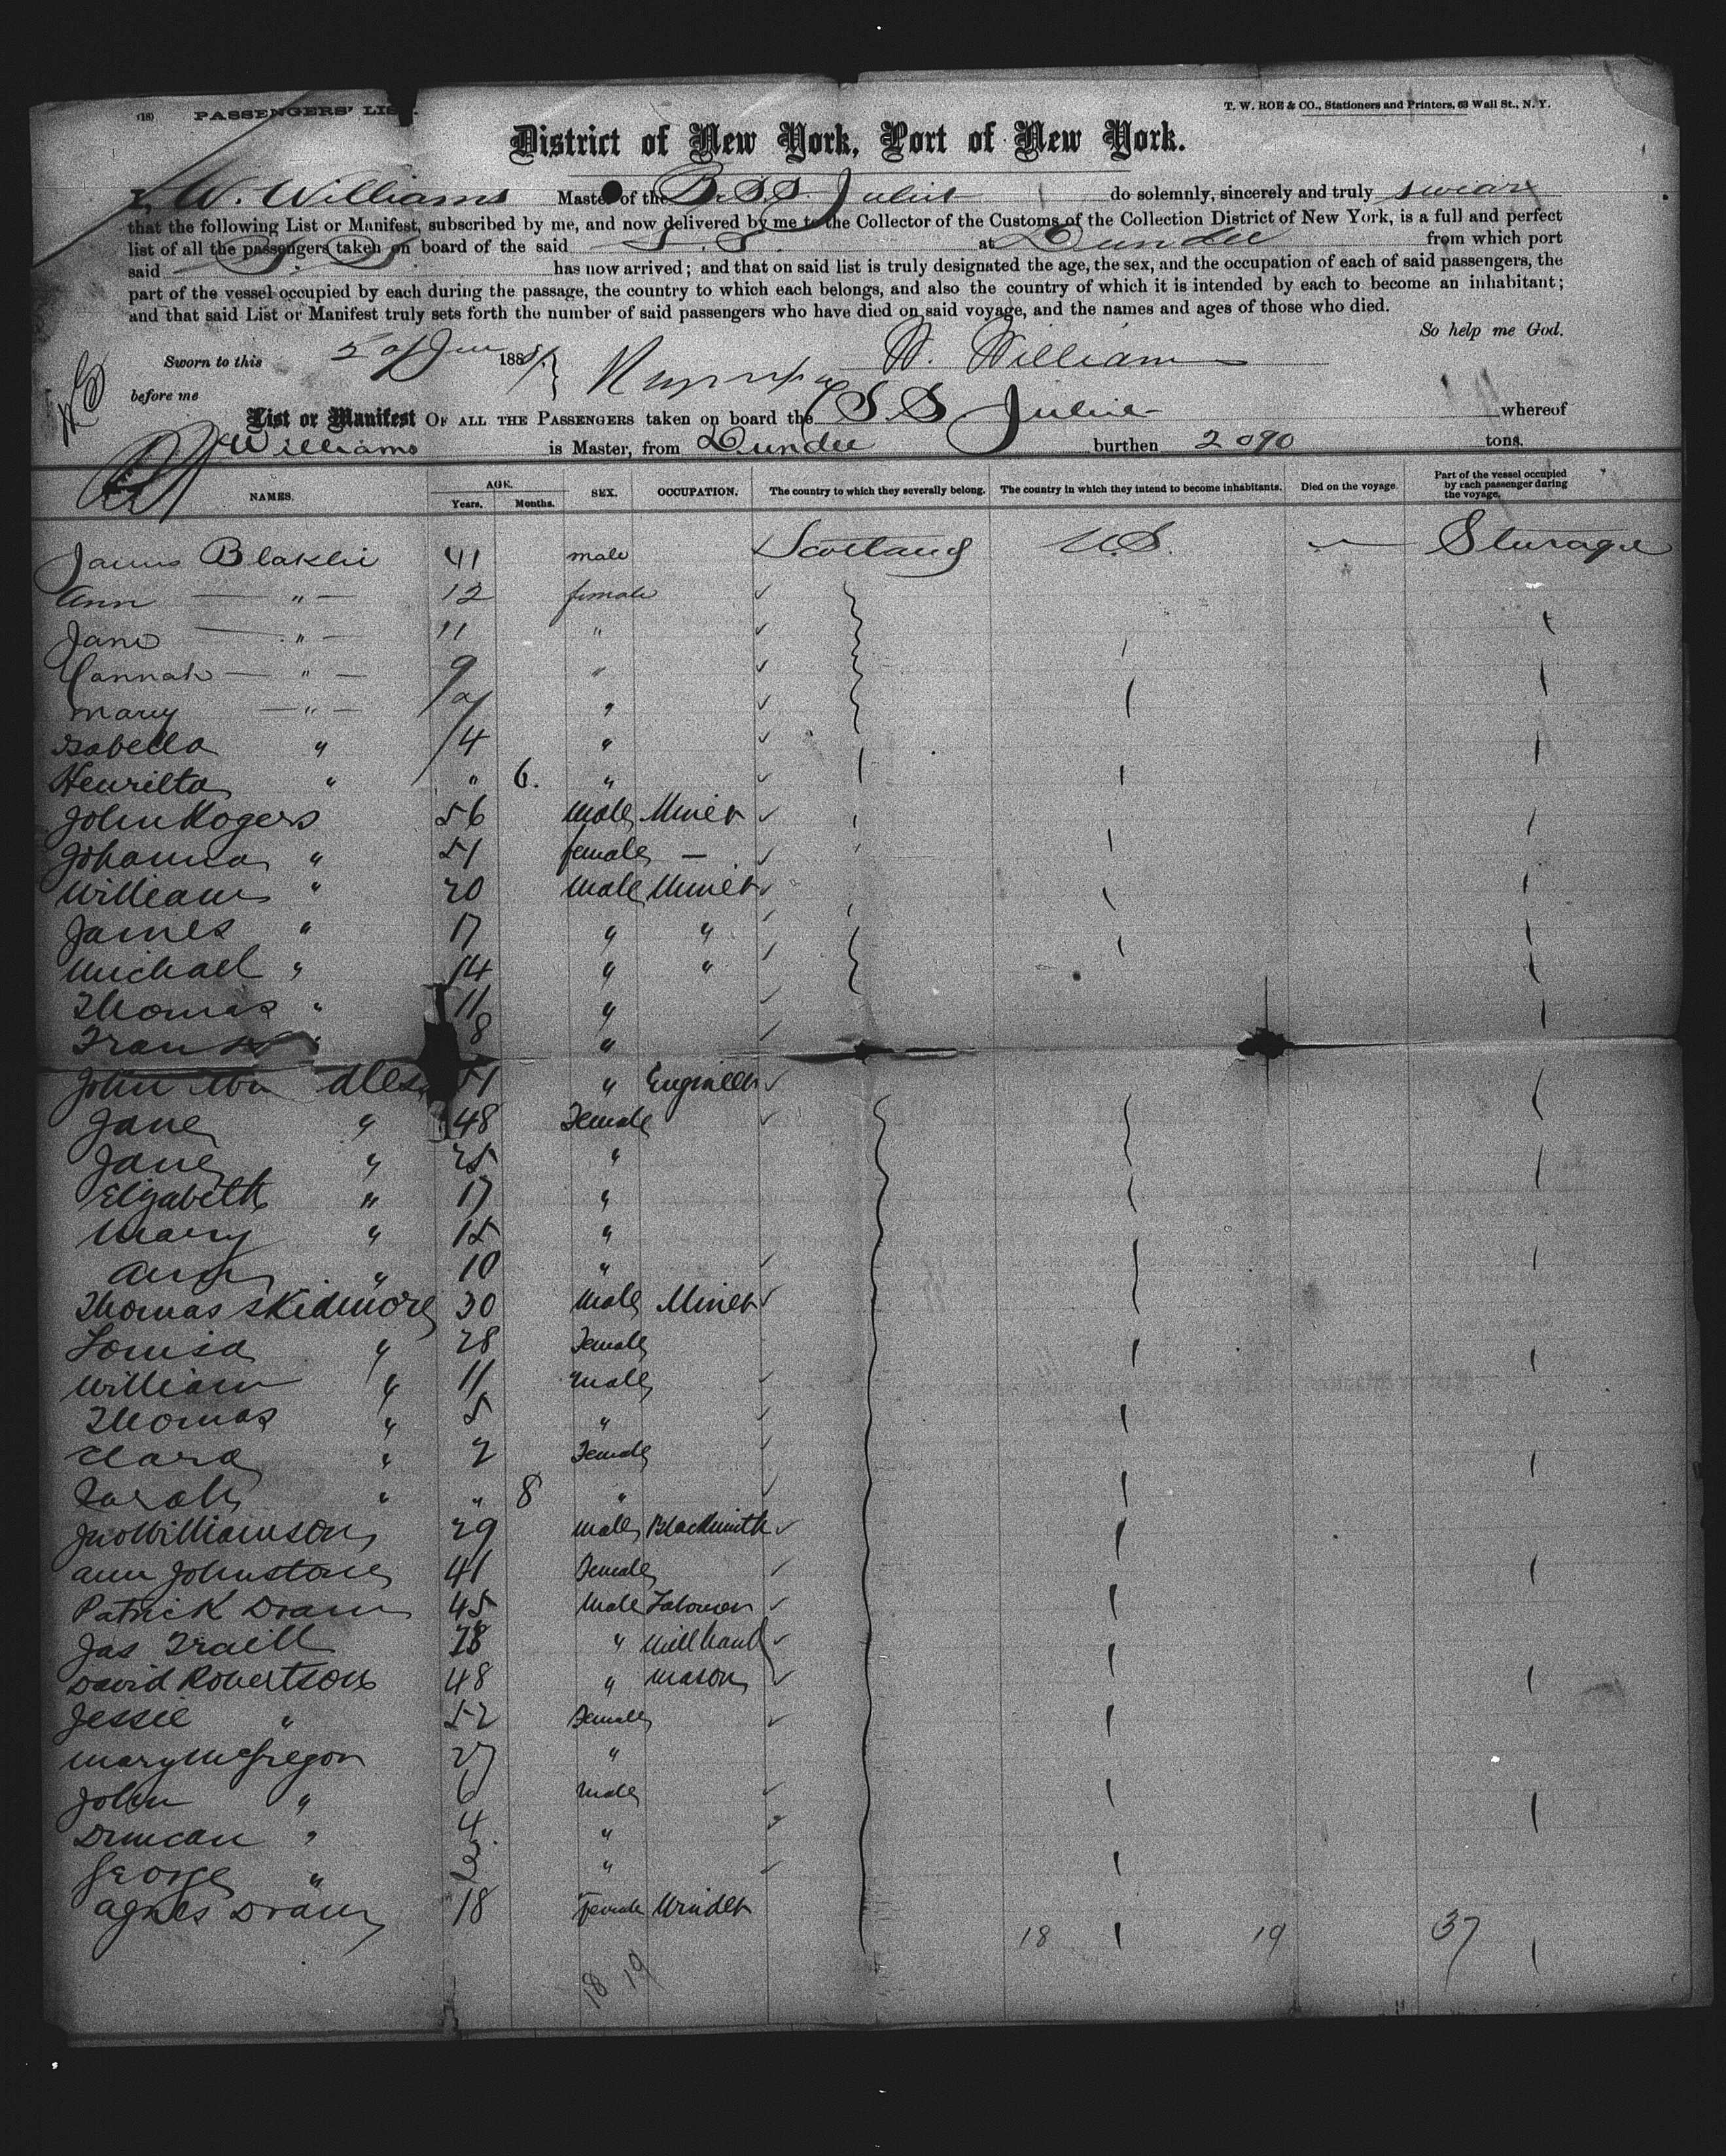 (18) PASSENGERS' LIST.
T. W. ROE & CO., Stationers and Printers, 63 Wall St., N. Y.
District of New York, Port of New York.
I, W. Williams Master of the Br SS Juliet do solemnly, sincerely and truly swear
that the following List or Manifest, subscribed by me, and now delivered by me to the Collector of the Customs of the Collection District of New York, is a full and perfect
list of all the passengers taken on board of the said S. S. at Dundee from which port
said S. S. has now arrived; and that on said list is truly designated the age, the sex, and the occupation of each of said passengers, the
part of the vessel occupied by each during the passage, the country to which each belongs, and also the country of which it is intended by each to become an inhabitant;
and that said List or Manifest truly sets forth the number of said passengers who have died on said voyage, and the names and ages of those who died.
So help me God.
Sworn to this 188 W. Williams
before me
List or Manifest OF ALL THE PASSENGERS taken on board the SS Juliet whereof
Williams is Master, from Dundee burthen 2090 tons.
NAMES. AGE. Years. Months. SEX. OCCUPATION. The country to which they severally belong. The country in which they intend to become inhabitants. Died on the voyage. Part of the vessel occupied by each passenger during the voyage.
James Blakslie 41 male Scotland U.S. — Sturage
Ann " 12 female
Jane " 11 "
Hannah " 9 "
Mary " "
Isabella " 4 "
Henrilta " " 6. "
John Rogers 56 Male Miner
Johanna " 51 female —
William " 20 Male Miner
James " 17 " "
Michael " 14 " "
Thomas " 11 "
Frank " 8 "
John 51 " Engineer
Jane " 48 Female
Jane " 25 "
Elizabeth " 17 "
Mary " 15 "
Ann " 10 "
Thomas Skidmore 30 Male Miner
Louisa " 28 Female
William " 11 Male
Thomas " 5 "
Clara " 2 Female
Sarah " " 8 "
Jno Williamson 29 Male Blacksmith
Ann Johnstone 41 Female
Patrick Dram 45 Male Labourer
Jas Traill 28 " Mill hand
David Robertson 48 " Mason
Jessie " 52 Female
Mary McGregor 27 "
John " 6 Male
Duncan " 4 "
George " 3 "
Agnes Dram 18 Female Winder
18 19 37
18 19